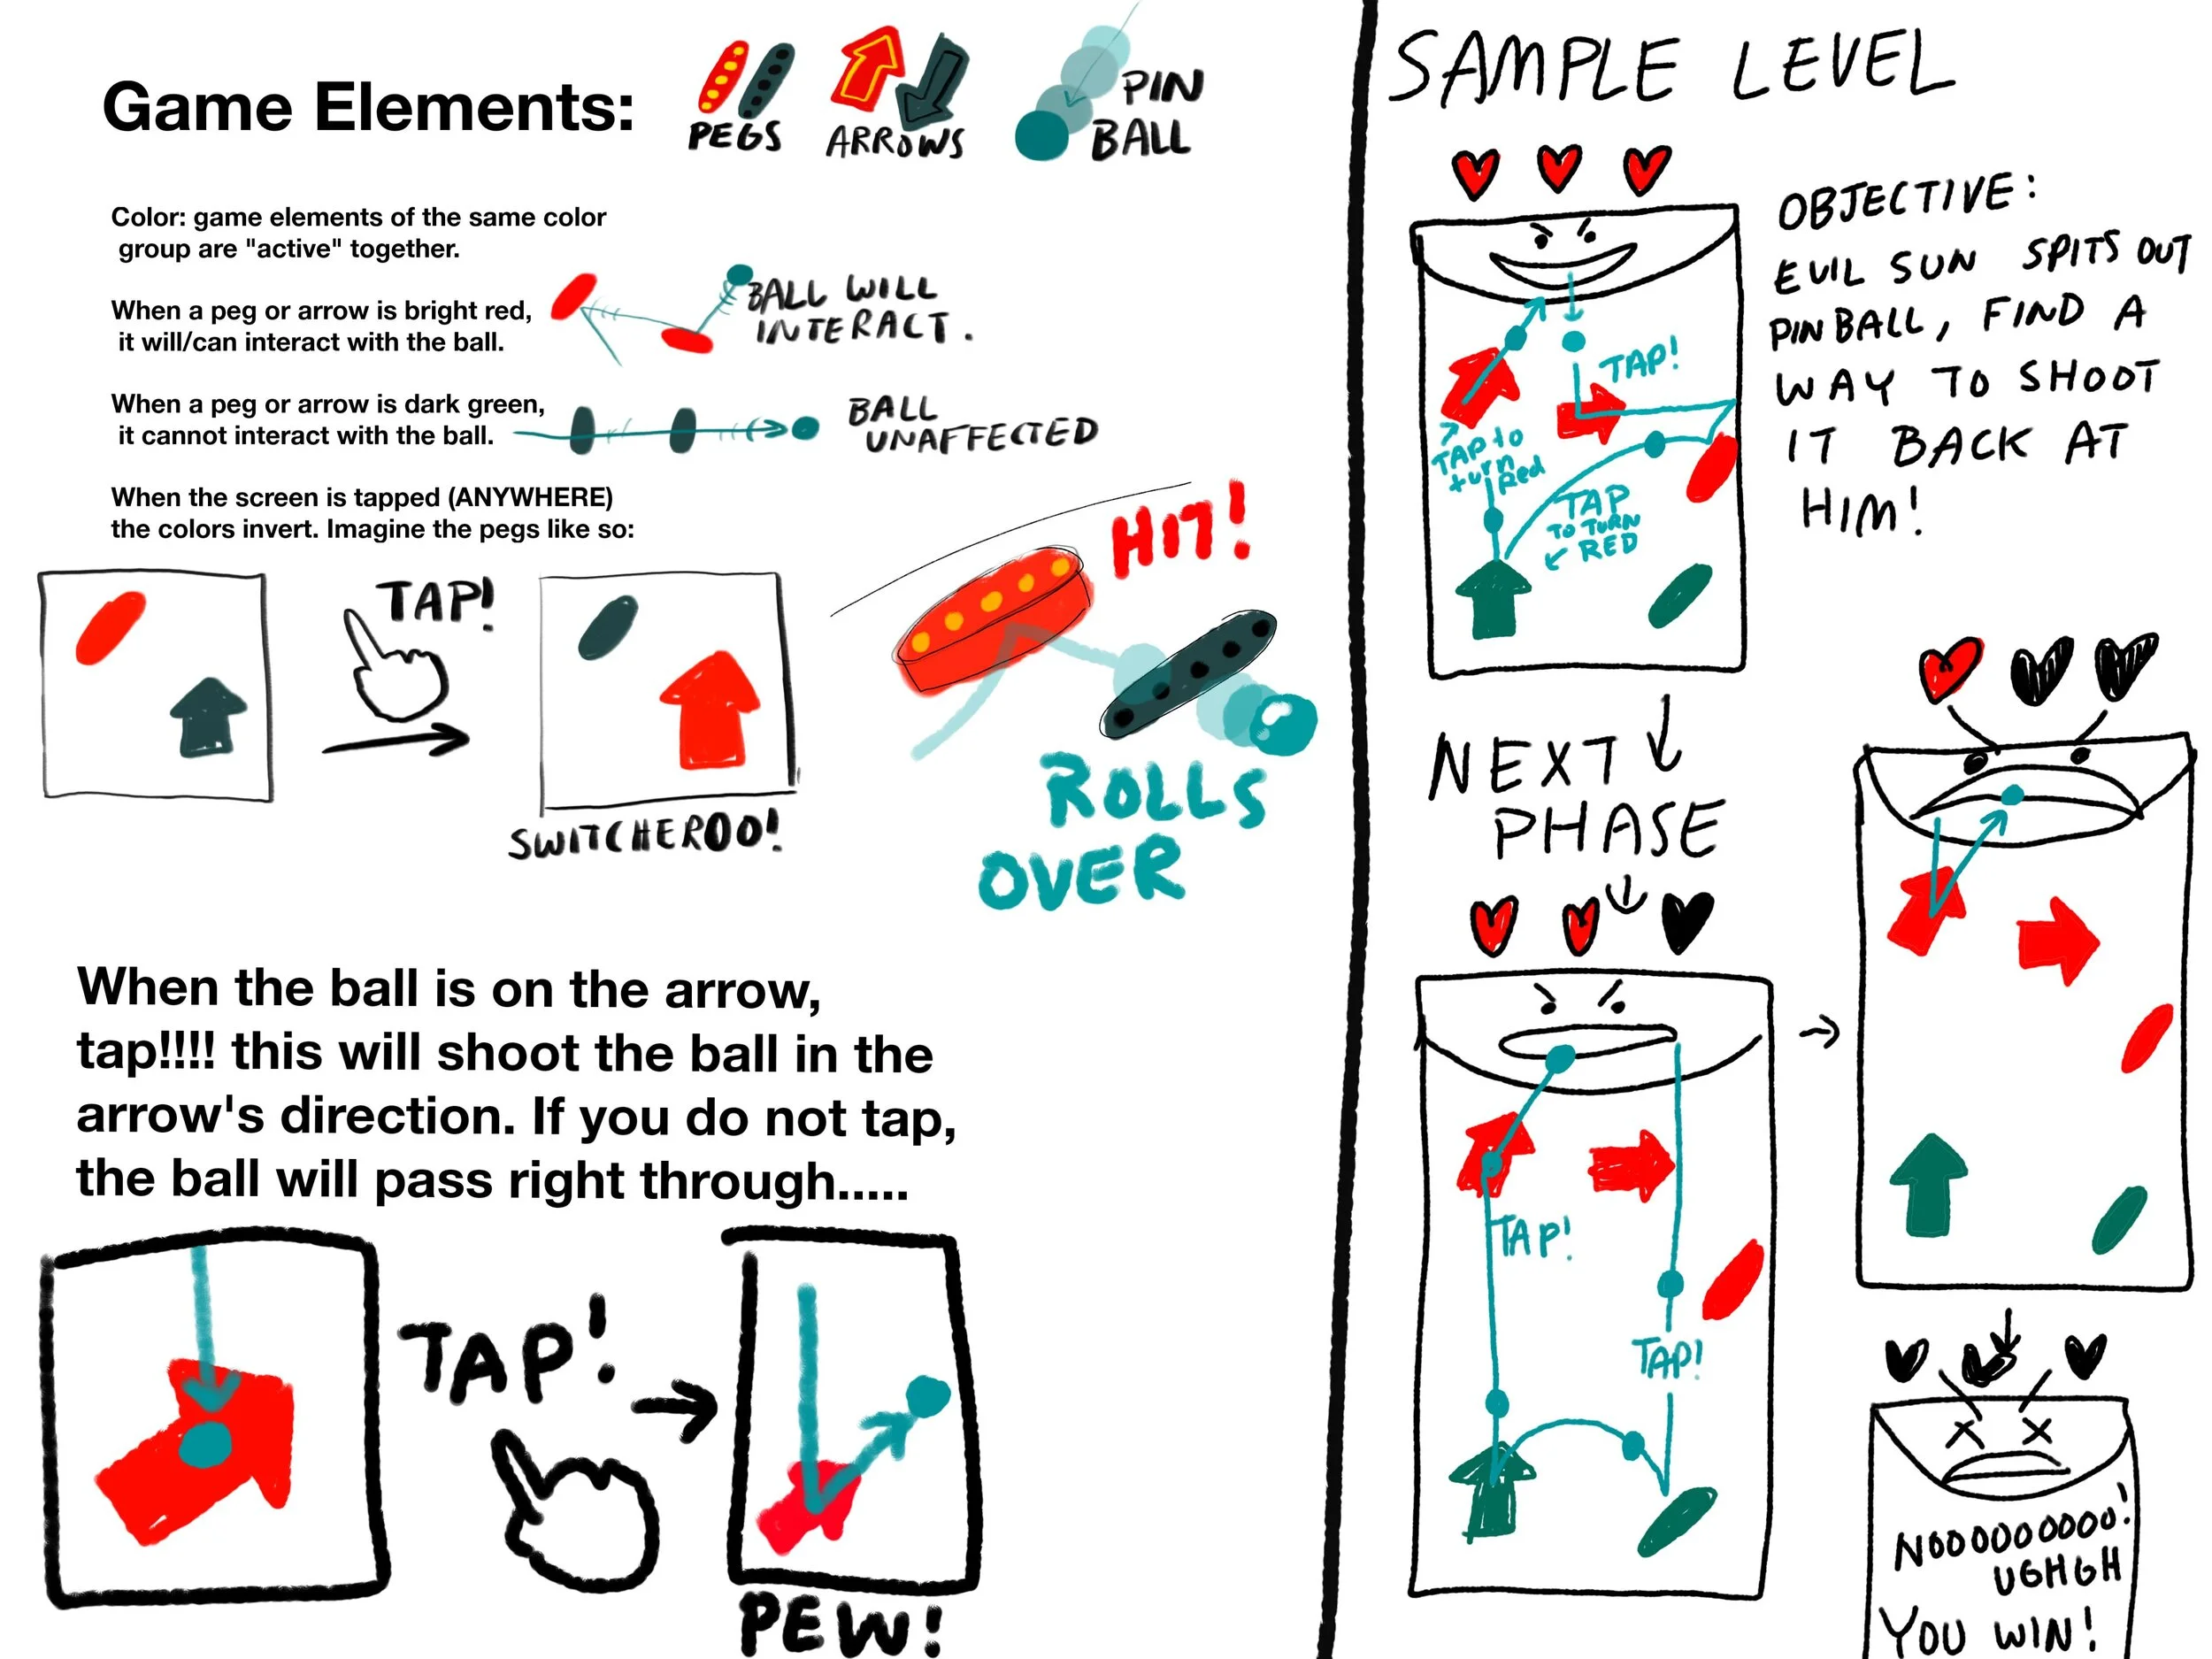 Game Elements:
PEGS
ARROWS
PIN
BALL
Color: game elements of the same color
group are "active" together.
When a peg or arrow is bright red,
it will/can interact with the ball.
BALL WILL
INTERACT.
When a peg or arrow is dark green,
it cannot interact with the ball.
BALL
UNAFFECTED
When the screen is tapped (ANYWHERE)
the colors invert. Imagine the pegs like so:
TAP!
SWITCHEROO!
HIT!
ROLLS
OVER
When the ball is on the arrow,
tap!!!! this will shoot the ball in the
arrow's direction. If you do not tap,
the ball will pass right through.....
TAP!
PEW!
SAMPLE LEVEL
OBJECTIVE:
EVIL SUN SPITS OUT
PINBALL, FIND A
WAY TO SHOOT
IT BACK AT
HIM!
TAP!
TAP to
turn
Red
TAP
TO TURN
RED
NEXT
PHASE
TAP!
TAP!
NOOOOOOOOO!
UGHGH
YOU WIN!